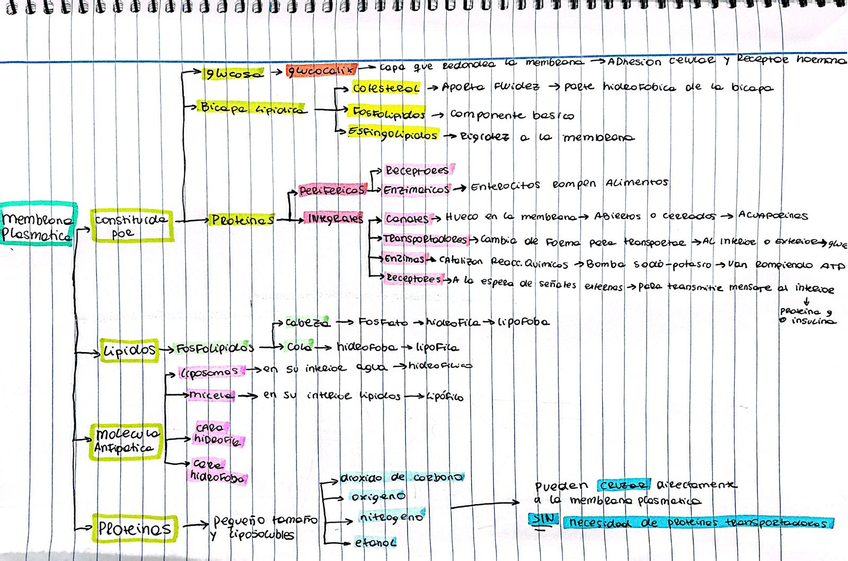 glucosa → glucocalix → capa que redondea la membrana → Adhesion celular y Receptor hormona
Bicapa lipidica
Colesterol → Aporta fluidez → parte hidrofobica de la bicapa
Fosfolipidos → componente basico
Esfingolipidos → Rigidez a la membrana
membrana
Plasmatica
constituida
por
Proteinas
PERIFERICOS
Receptores
Enzimaticos → Enterocitos rompen Alimentos
INTEGRALES
Canales → Hueco en la membrana → Abiertos o cerrados → Acuaporinas
Transportadores → Cambia de forma para transportar → Al interior o exterior → glue
Enzimas → catalizan Reacc. Quimicos → Bomba sodio-potasio → Van rompiendo ATP
Receptores → A la espera de señales externas → para transmitir mensaje al interior
↓
Proteina g
o insulina
Lipidos → Fosfolipidos
cabeza → Fosfato → hidrofila → lipofoba
cola → hidrofoba → lipofila
molecula
Anfipatica
liposomas → en su interior agua → hidrofilico
micela → en su interior lipidos → lipófico
CARA
hidrofila
cara
hidrofoba
Proteinas → pequeño tamaño
y liposolubles
dioxido de carbono
oxigeno
nitrogeno
etanol
pueden cruzar directamente
a la membrana plasmatica
SIN necesidad de proteinas transportadoras